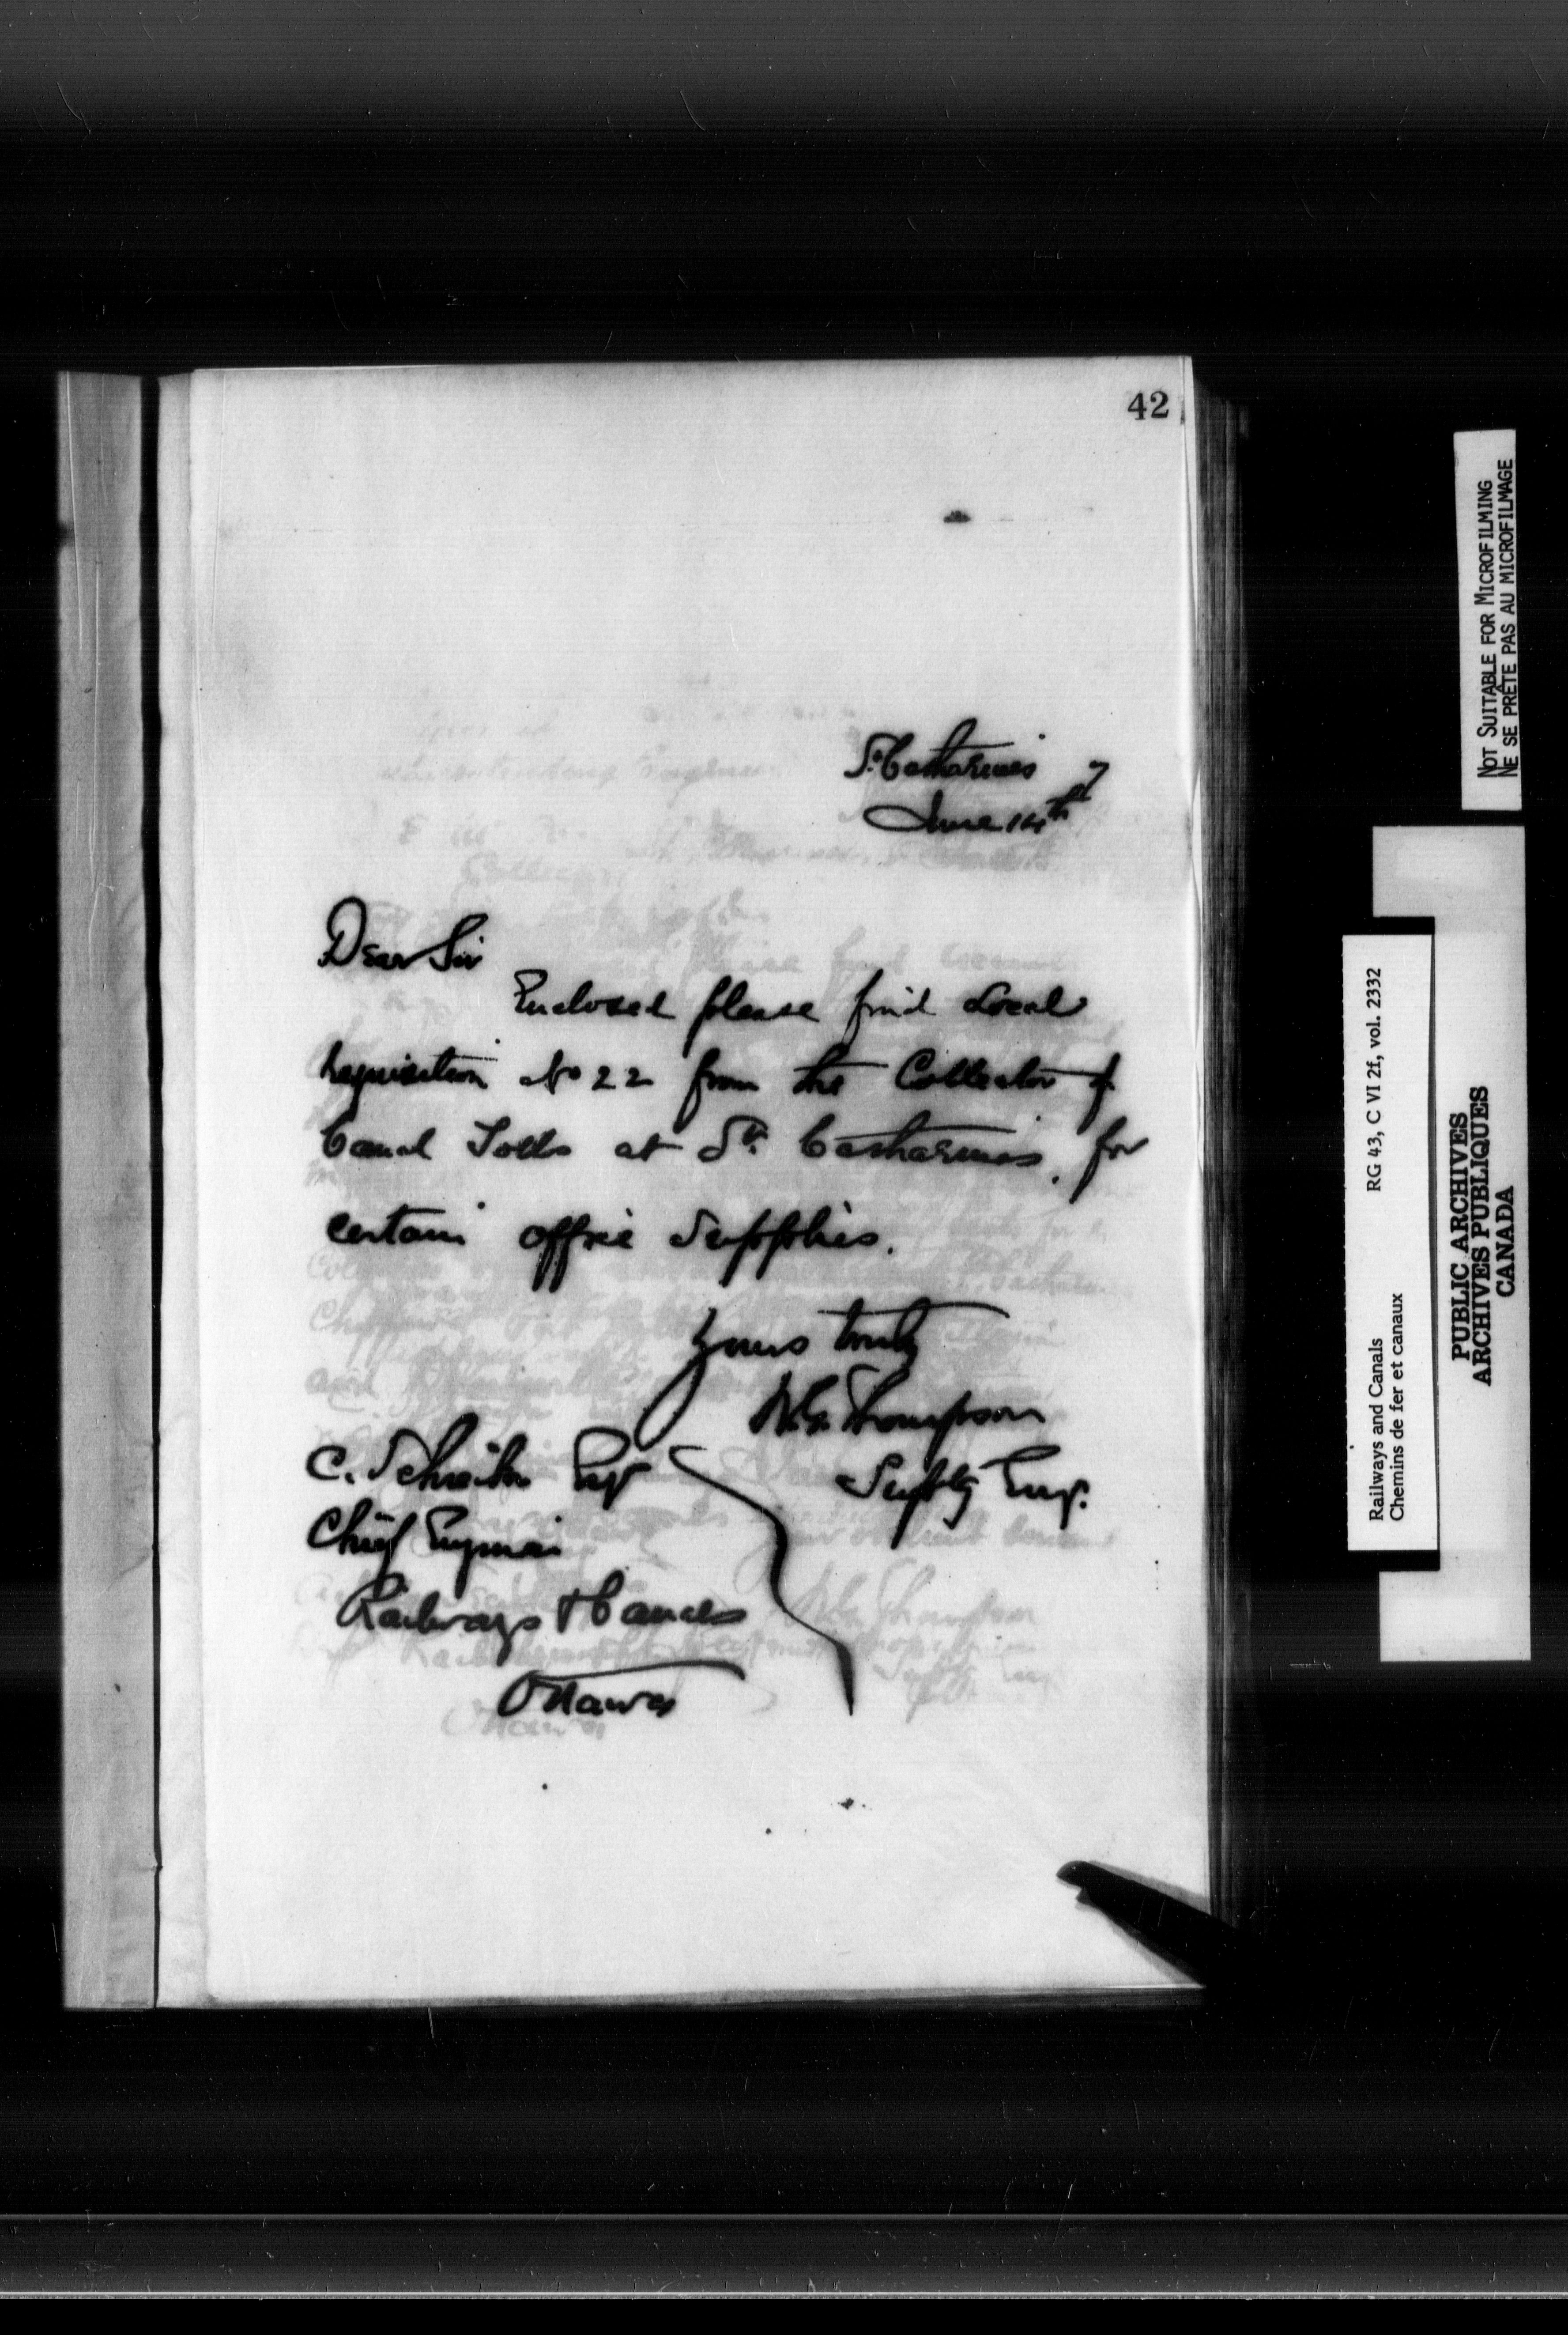 42
St. Catharines
June 14th 7
Dear Sir
Enclosed please find Local
requisition No 22 from the Collector of
Canal Tolls at St. Catharines, for
certain office supplies.
Yours truly
W.G. Thompson
Suptg Eng.
C. Schreiber Esqr
Chief Engineer
Railways & Canals
Ottawa
NOT SUITABLE FOR MICROFILMING
NE SE PRÊTE PAS AU MICROFILMAGE
RG 43, C VI 2f, vol. 2332
Railways and Canals
Chemins de fer et canaux
PUBLIC ARCHIVES
ARCHIVES PUBLIQUES
CANADA